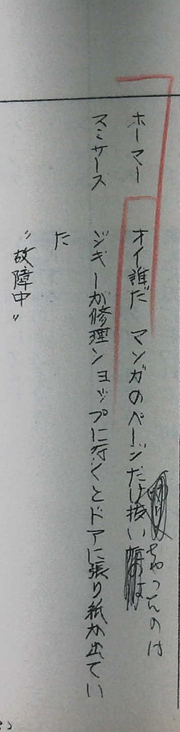 ホーマー オイ誰だ マンガのページだけ抜いちゃったのは
スミサース ジギーが修理ショップに行くとドアに張り紙が出てい
た
"故障中"